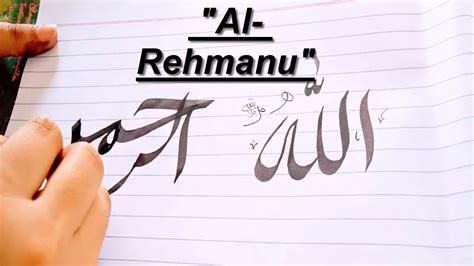 "Al-
Rehmanu"
الله الرحمـ